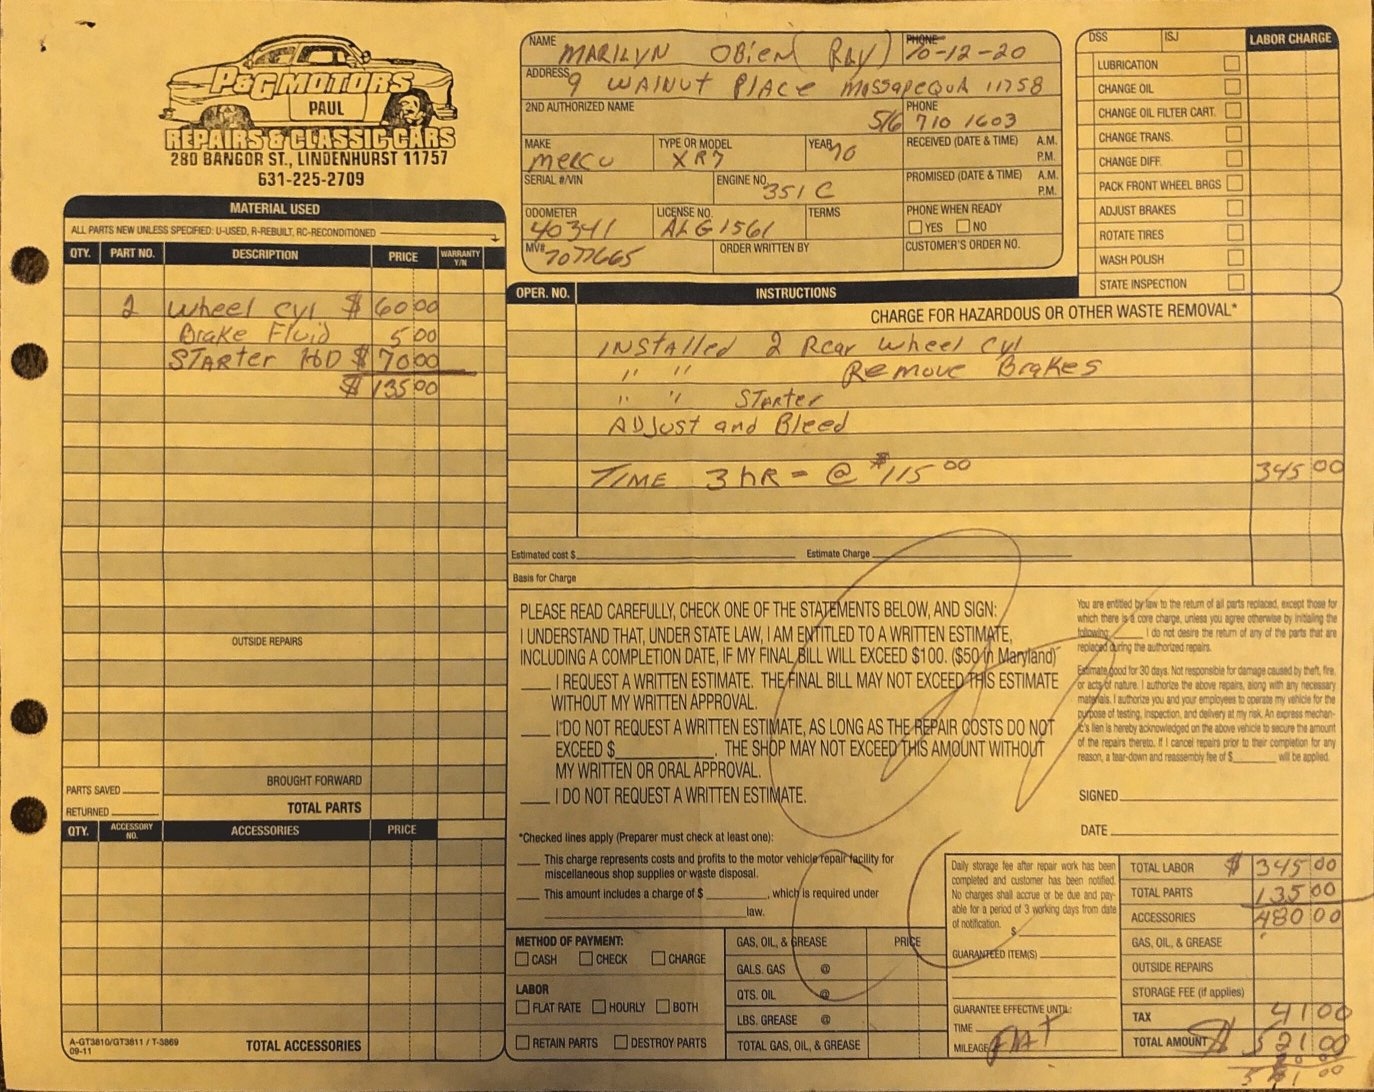 P&G MOTORS
PAUL
REPAIRS & CLASSIC CARS
280 BANGOR ST., LINDENHURST 11757
631-225-2709
NAME MARILYN OBiEN (RAY) PHONE 10-12-20
ADDRESS 9 WALNUT PLACE MASSAPEQUA 11758
2ND AUTHORIZED NAME PHONE 516 710 1603
MAKE MERCU TYPE OR MODEL XR7 YEAR 70 RECEIVED (DATE & TIME) A.M. P.M.
SERIAL #/VIN ENGINE NO. 351 C PROMISED (DATE & TIME) A.M. P.M.
ODOMETER 40341 LICENSE NO. ALG1561 TERMS PHONE WHEN READY YES NO
MV# 7077665 ORDER WRITTEN BY CUSTOMER'S ORDER NO.
DSS ISJ LABOR CHARGE
LUBRICATION
CHANGE OIL
CHANGE OIL FILTER CART.
CHANGE TRANS.
CHANGE DIFF.
PACK FRONT WHEEL BRGS
ADJUST BRAKES
ROTATE TIRES
WASH POLISH
STATE INSPECTION
MATERIAL USED
ALL PARTS NEW UNLESS SPECIFIED: U-USED, R-REBUILT, RC-RECONDITIONED
QTY. PART NO. DESCRIPTION PRICE WARRANTY Y/N
2 Wheel Cyl $ 60 00
Brake Fluid 5 00
STARTER $ 70 00
$ 135 00
OUTSIDE REPAIRS
BROUGHT FORWARD
PARTS SAVED
RETURNED TOTAL PARTS
QTY. ACCESSORY NO. ACCESSORIES PRICE
A-GT3810/GT3811 / T-3869
09-11
TOTAL ACCESSORIES
OPER. NO. INSTRUCTIONS
CHARGE FOR HAZARDOUS OR OTHER WASTE REMOVAL*
INSTAlled 2 Rear Wheel Cyl
" " Remove Brakes
" " STArter
ADJust and Bleed
TIME 3 HR - @ $115 00 345 00
Estimated cost $ Estimate Charge
Basis for Charge
PLEASE READ CAREFULLY, CHECK ONE OF THE STATEMENTS BELOW, AND SIGN:
I UNDERSTAND THAT, UNDER STATE LAW, I AM ENTITLED TO A WRITTEN ESTIMATE,
INCLUDING A COMPLETION DATE, IF MY FINAL BILL WILL EXCEED $100. ($50 in Maryland)
I REQUEST A WRITTEN ESTIMATE. THE FINAL BILL MAY NOT EXCEED THIS ESTIMATE
WITHOUT MY WRITTEN APPROVAL.
I DO NOT REQUEST A WRITTEN ESTIMATE, AS LONG AS THE REPAIR COSTS DO NOT
EXCEED $ . THE SHOP MAY NOT EXCEED THIS AMOUNT WITHOUT
MY WRITTEN OR ORAL APPROVAL.
I DO NOT REQUEST A WRITTEN ESTIMATE.
You are entitled by law to the return of all parts replaced, except those for
which there is a core charge, unless you agree otherwise by initialing the
following. I do not desire the return of any of the parts that are
replaced during the authorized repairs.
Estimate good for 30 days. Not responsible for damage caused by theft, fire,
or acts of nature. I authorize the above repairs, along with any necessary
materials. I authorize you and your employees to operate my vehicle for the
purpose of testing, inspection, and delivery at my risk. An express mechan-
ic's lien is hereby acknowledged on the above vehicle to secure the amount
of the repairs thereto. If I cancel repairs prior to their completion for any
reason, a tear-down and reassembly fee of $ will be applied.
SIGNED
DATE
*Checked lines apply (Preparer must check at least one):
This charge represents costs and profits to the motor vehicle repair facility for
miscellaneous shop supplies or waste disposal.
This amount includes a charge of $ , which is required under
law.
METHOD OF PAYMENT:
CASH CHECK CHARGE
LABOR
FLAT RATE HOURLY BOTH
RETAIN PARTS DESTROY PARTS
GAS, OIL, & GREASE PRICE
GALS. GAS @
QTS. OIL @
LBS. GREASE @
TOTAL GAS, OIL, & GREASE
Daily storage fee after repair work has been
completed and customer has been notified.
No charges shall accrue or be due and pay-
able for a period of 3 working days from date
of notification. $
GUARANTEED ITEM(S)
GUARANTEE EFFECTIVE UNTIL:
TIME
MILEAGE
TOTAL LABOR $ 345 00
TOTAL PARTS 135 00
ACCESSORIES 480 00
GAS, OIL, & GREASE
OUTSIDE REPAIRS
STORAGE FEE (if applies)
TAX 41 00
TOTAL AMOUNT $ 521 00